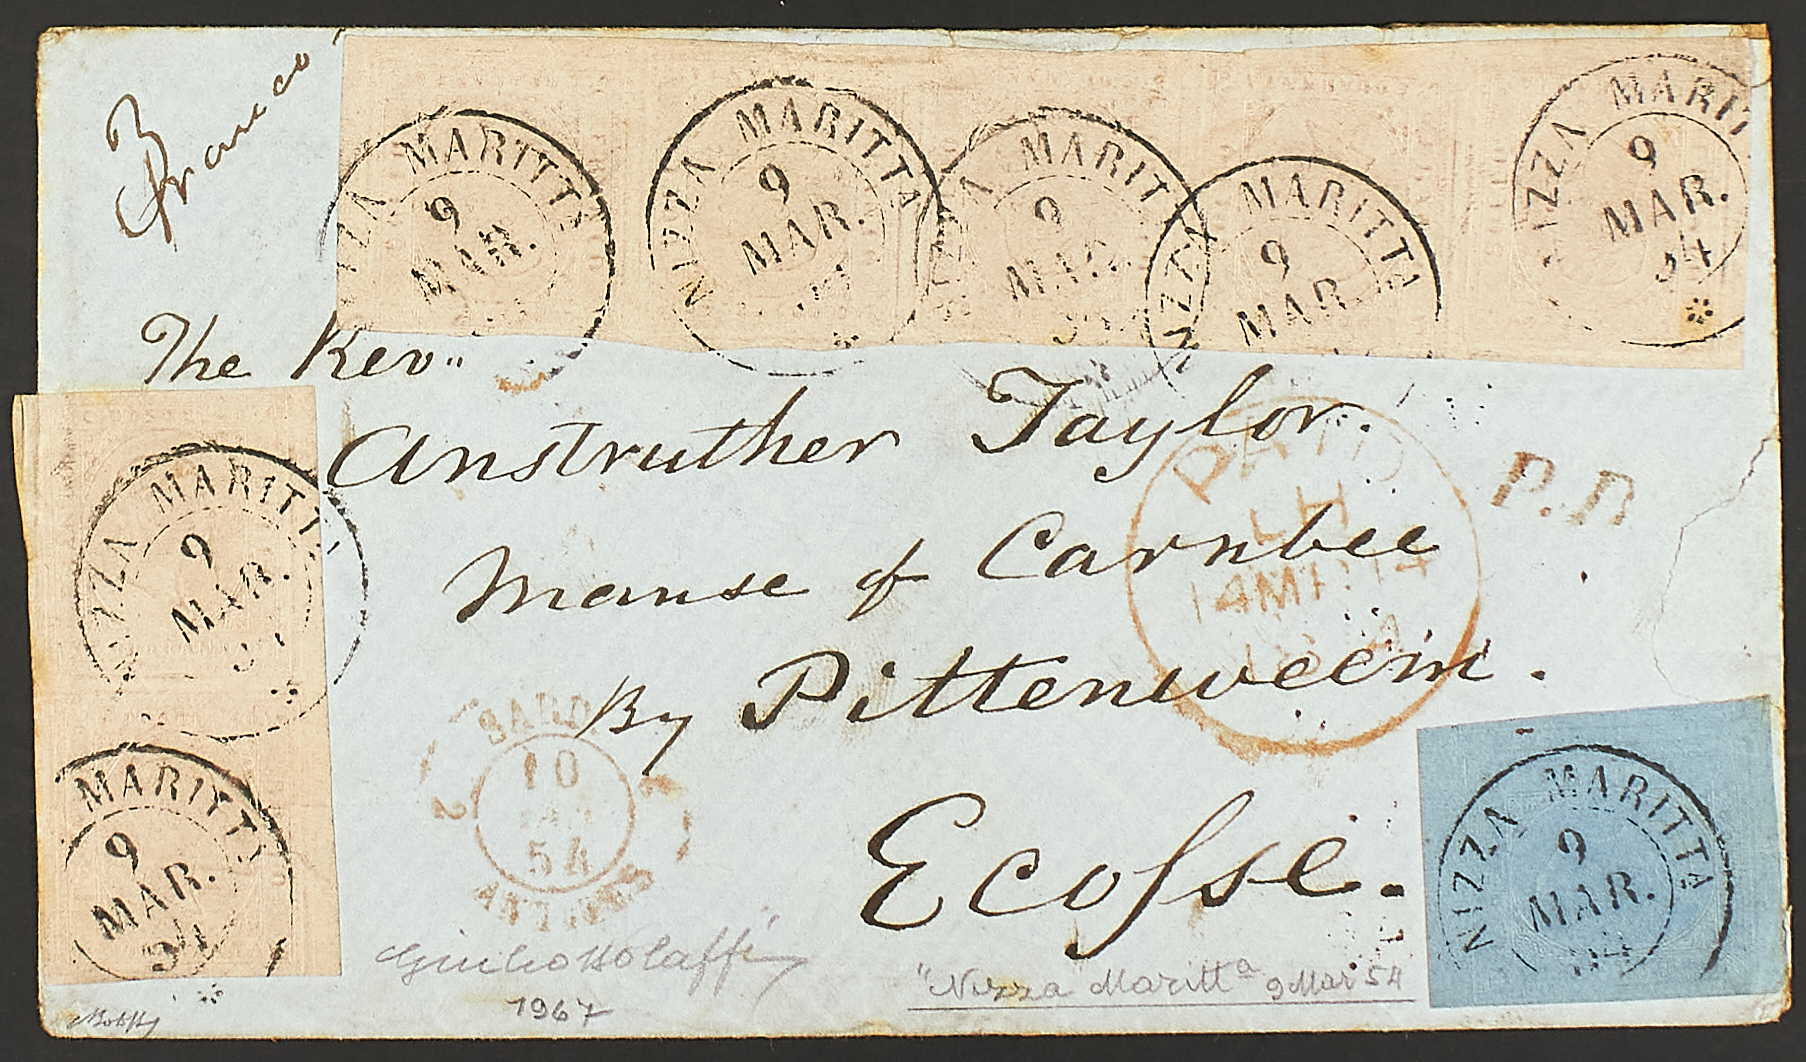 Franco
NIZZA MARITTA
9
MAR.
NIZZA MARITTA
9
MAR.
NIZZA MARITTA
9
MAR.
NIZZA MARITTA
9
MAR.
NIZZA MARITTA
9
MAR.
54
The Rev"
Anstruther Taylor.
Manse of Carnbee
By Pittenweem.
Ecosse.
PAID
LH
14 MR 14
P.D.
NIZZA MARITTA
9
MAR.
54
NIZZA MARITTA
9
MAR.
54
SARD
10
54
ANTIBES
2
2
NIZZA MARITTA
9
MAR.
54
Giulio Bolaffi
1967
"Nizza Maritt^a 9 Mar 54